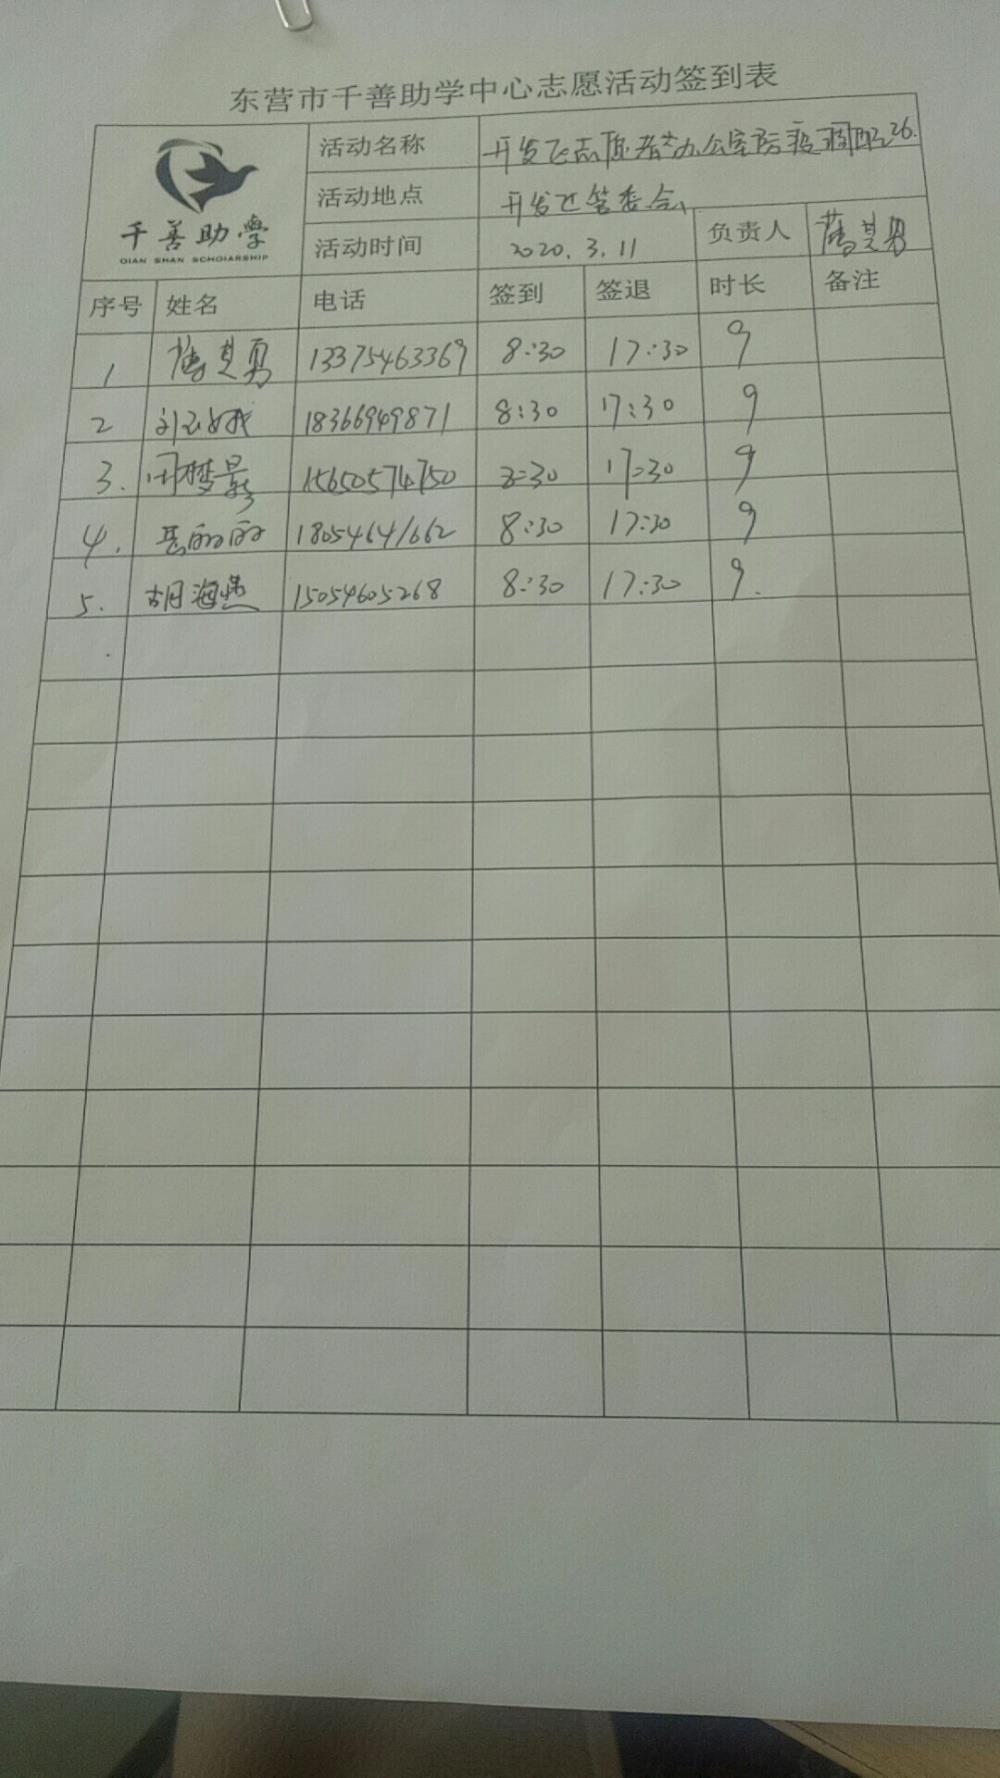 东营市千善助学中心志愿活动签到表
千善助学
QIAN SHAN SCHOLARSHIP
活动名称 开发区志愿者办公室防疫 26.
活动地点 开发区管委会
活动时间 2020.3.11 负责人 薄其勇
序号 姓名 电话 签到 签退 时长 备注
1 薄其勇 13375463369 8:30 17:30 9
2 18366949871 8:30 17:30 9
3. 周梦影 15650574750 8:30 17:30 9
4. 丽丽 18054641662 8:30 17:30 9
5. 胡海燕 15054605268 8:30 17:30 9.